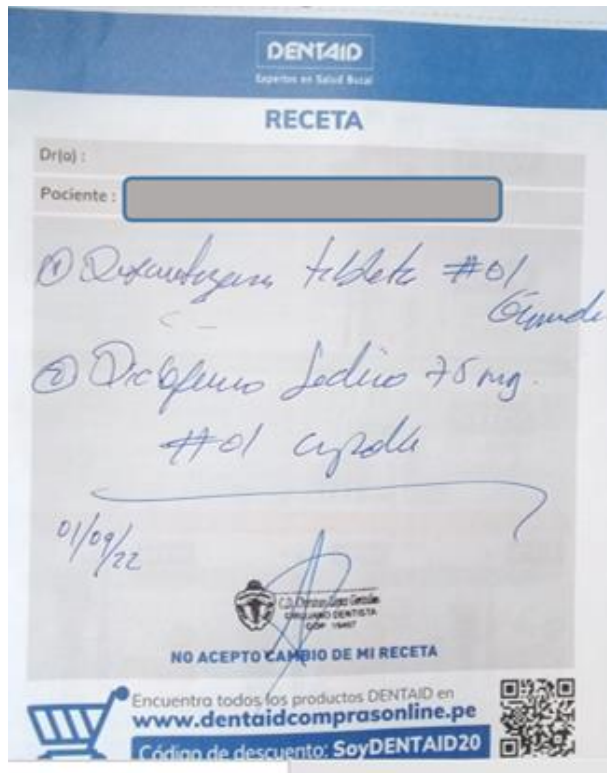 DENTAID
Expertos en Salud Bucal
RECETA
Dr(a) :
Paciente :
① tableta #01
② Diclofenaco Sodico 75 mg.
#01
01/09/22
CIRUJANO DENTISTA
COP
NO ACEPTO CAMBIO DE MI RECETA
Encuentra todos los productos DENTAID en
www.dentaidcomprasonline.pe
Código de descuento: SoyDENTAID20